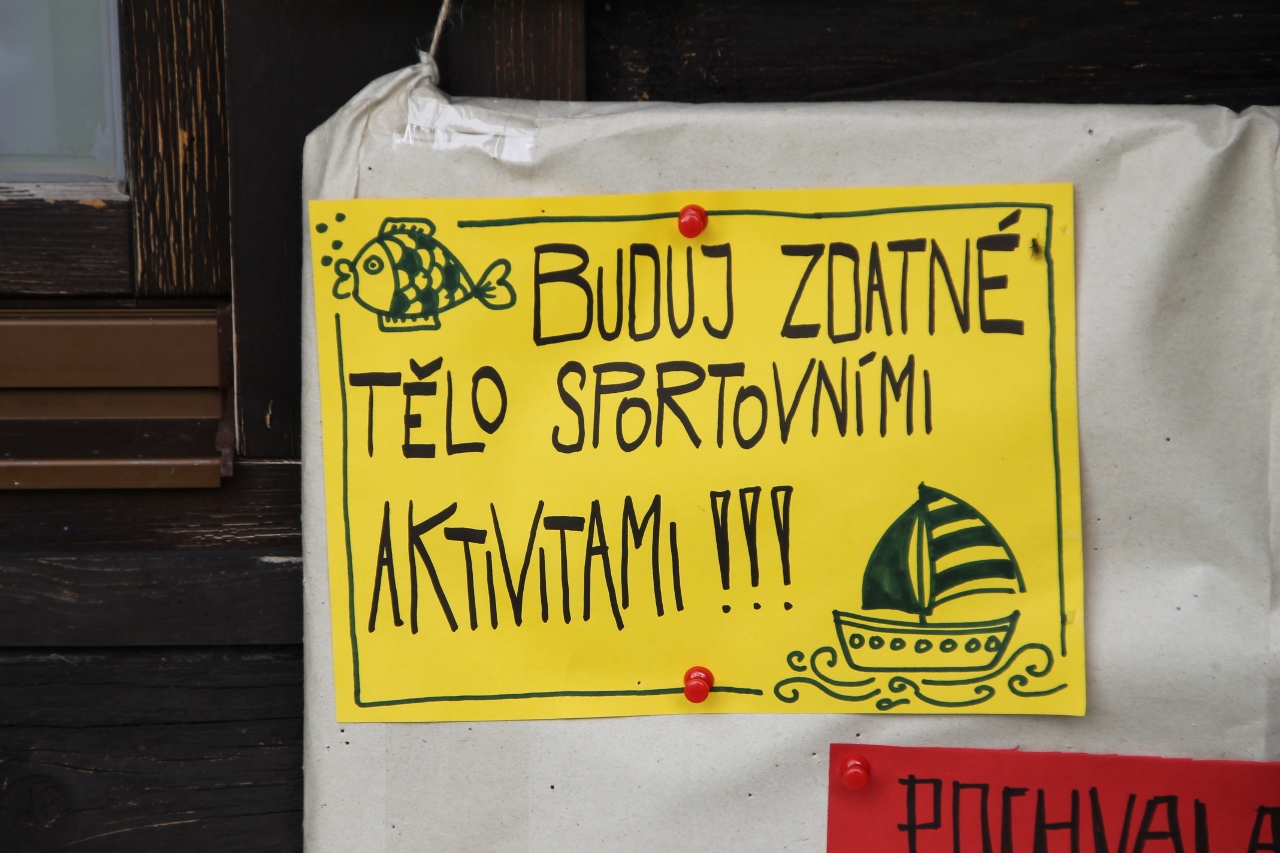 BUDUJ ZDATNÉ
TĚLO SPORTOVNÍMI
AKTIVITAMI !!!
POCHVALA